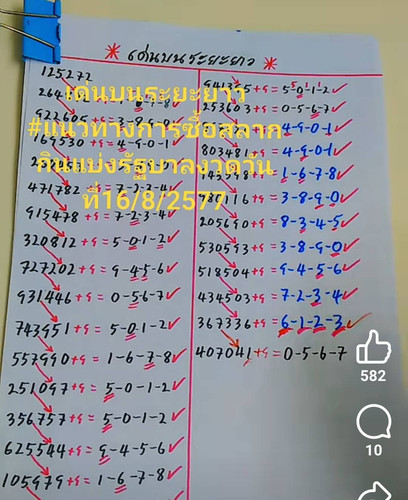 * เด่นบนระยะยาว *
125272
169530+9 = 4-9-0-1
471782+9 = 7-2-3-4
915478+9 = 7-2-3-4
320812+9 = 5-0-1-2
727202+9 = 9-4-5-6
931446+9 = 0-5-6-7
743951+9 = 5-0-1-2
557990+9 = 1-6-7-8
251097+9 = 5-0-1-2
356757+9 = 5-0-1-2
625544+9 = 9-4-5-6
105979+9 = 1-6-7-8
+9 = 5-0-1-2
253603+9 = 0-5-6-7
4-9-0-1
803481+9 = 4-9-0-1
+9 = 1-6-7-8
+9 = 3-8-9-0
205690+9 = 8-3-4-5
530593+9 = 3-8-9-0
518504+9 = 9-4-5-6
434503+9 = 7-2-3-4
367336+9 = 6-1-2-3
407041+9 = 0-5-6-7
เด่นบนระยะยาว
#แนวทางการซื้อสลาก
กินแบ่งรัฐบาลงวดวัน
ที่16/8/2577
582
10